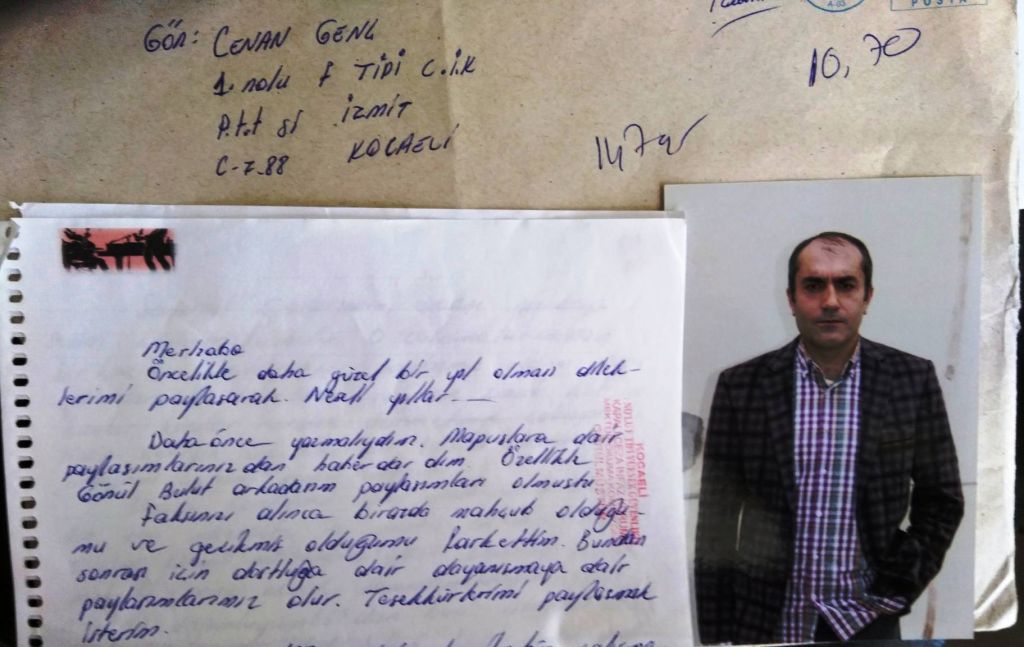 GÖN: CENAN GENÇ
1. nolu F TİPİ C.İ.K
P.t.t si İZMİT
C-7.88 KOCAELİ
POSTA
10,70
Merhaba
Öncelikle daha güzel bir yıl olması dilek-
lerimi paylaşarak. Nice yıllar...
Daha önce yazmalıydım. Mapuslara dair
paylaşımlarınızdan haberdardım. Özellikle
Gönül Bulut arkadaşın paylaşımları olmuştu.
Faksınızı alınca birazda mahçub olduğu-
mu ve gecikmiş olduğumu farkettim. Bundan
sonrası için dostluğa dair dayanışmaya dair
paylaşımlarımız olur. Teşekkürlerimi paylaşmak
isterim.
KOCAELİ